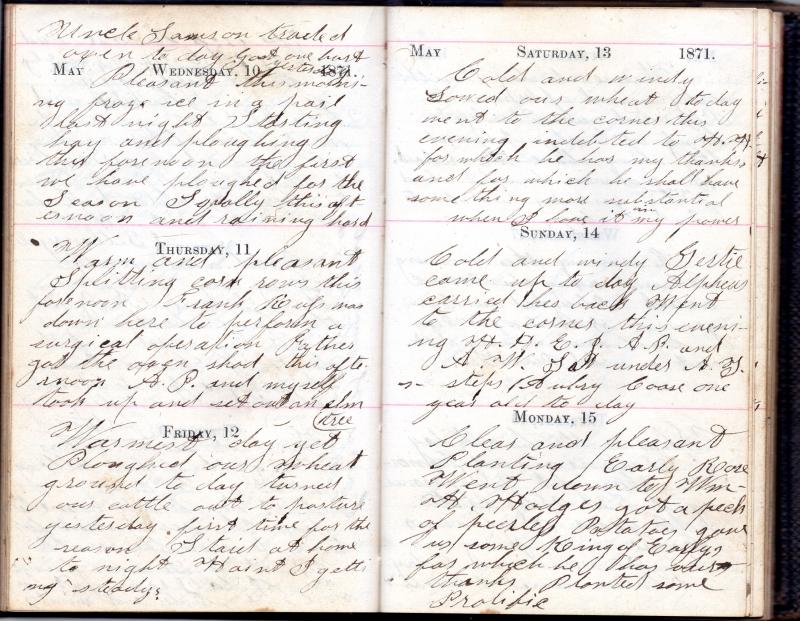 Uncle Samson traded
oxen to day Got one hurt
yesterday
May Wednesday, 10 1871.
Pleasant this morni-
ng froze ice in a pail
last night
hay and ploughing
this forenoon the first
we have ploughed for the
Season this aft
ernoon and raining hard
Thursday, 11
Warm and pleasant
Splitting corn rows this
forenoon Frank was
down here to perform a
surgical operation Father
got the oxen shod this afte-
rnoon A. P. and myself
took up and set out an elm
tree
Friday, 12
Warmest day yet
Ploughed our wheat
ground to day turned
our cattle out to pasture
yesterday first time for the
season Staid at home
to night Haint I getti
ng steady?
May Saturday, 13 1871.
Cold and windy
Sowed our wheat to day
went to the corner this
evening indebted to H. H.
for which he has my thanks
and for which he shall have
something more substantial
when I have it in my power
Sunday, 14
Cold and windy Gertie
came up to day Alpheus
carried her back Went
to the corner this eveni-
ng H. H. E. P. A. P. and
A. W. Sat under A. G.
s- steps Aubry Coose one
year old to day
Monday, 15
Clear and pleasant
Planting Early Rose
Went down to Wm-
H. Hodges got a peck
of peerless Potatoes gave
us some King of Earlys
for which he has our
thanks Planted some
Prolific